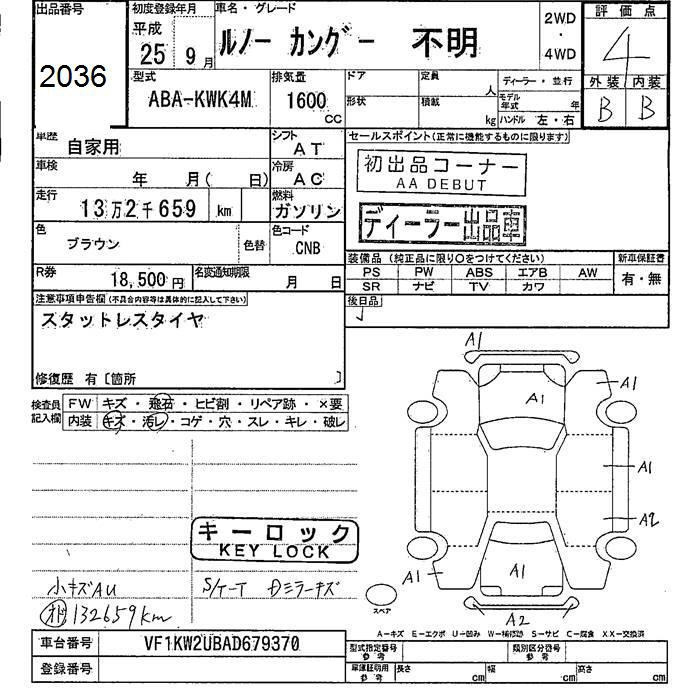 出品番号
2036
初度登録年月
平成
25 9月
車名・グレード
ルノー カングー 不明
2WD
・
4WD
評価点
4
外装 内装
B B
型式
ABA-KWK4M
排気量
1600
cc
ドア
形状
定員
人
積載
kg
ディーラー・並行
モデル年式 年
ハンドル 左・右
車歴
自家用
シフト
AT
車検
年 月( 日)
冷房
AC
走行
13万2千659 km
燃料
ガソリン
色
ブラウン
色替
色コード
CNB
R券
18,500円
名変通知期限
月 日
セールスポイント(正常に機能するものに限ります)
初出品コーナー
AA DEBUT
ディーラー出品車
装備品(純正品に限り○をつけてください)
PS PW ABS エアB AW
SR ナビ TV カワ
新車保証書
有・無
後日品
注意事項申告欄(不具合内容等は具体的に記入して下さい)
スタットレスタイヤ
修復歴 有〔箇所 〕
検査員記入欄
FW キズ・飛石・ヒビ割・リペア跡・×要
内装 キズ・汚レ・コゲ・穴・スレ・キレ・破レ
キーロック
KEY LOCK
小キズAU
S/ケーT Dミラーキズ
132659km
A1
A1
A1
A1
A2
A1
A1
A2
スペア
A―キズ E―エクボ U―凹み W―補修跡 S―サビ C―腐食 XX―交換済
車台番号
VF1KW2UBAD679370
登録番号
型式指定番号
参考
類別区分番号
参考
車庫証明用
参考
長さ cm
幅 cm
高さ cm